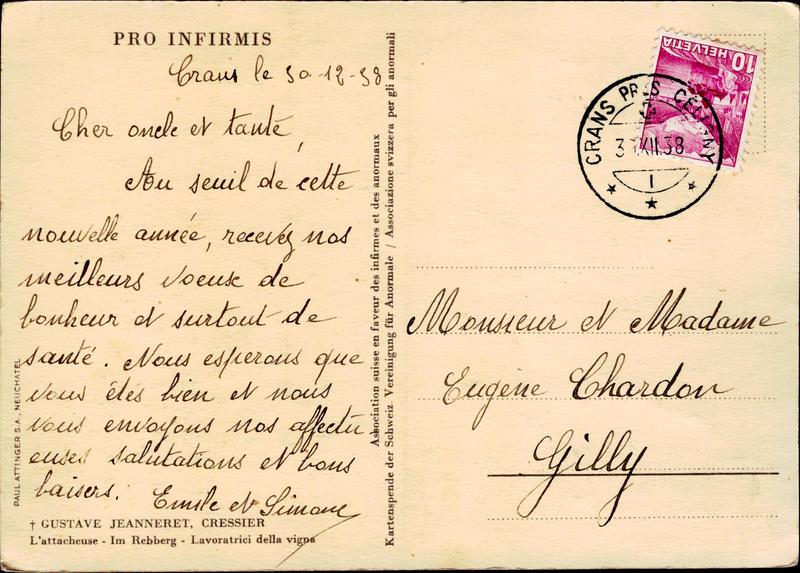 PRO INFIRMIS
Crans le 30-12-38
Cher oncle et tante,
Au seuil de cette
nouvelle année, recevez nos
meilleurs voeux de
bonheur et surtout de
santé. Nous esperons que
vous étés bien et nous
vous envoyons nos affectu
euses salutations et bons
baisers. Emile et Simone
† GUSTAVE JEANNERET, CRESSIER
L'attacheuse - Im Rebberg - Lavoratrici della vigna
PAUL ATTINGER S.A., NEUCHATEL
Association suisse en faveur des infirmes et des anormaux
Kartenspende der Schweiz Vereinigung für Anormale / Associazione svizzera per gli anormali
HELVETIA
10
CRANS PRÈS CÉLIGNY
XII.38
1
Monsieur et Madame
Eugène Chardon
Gilly